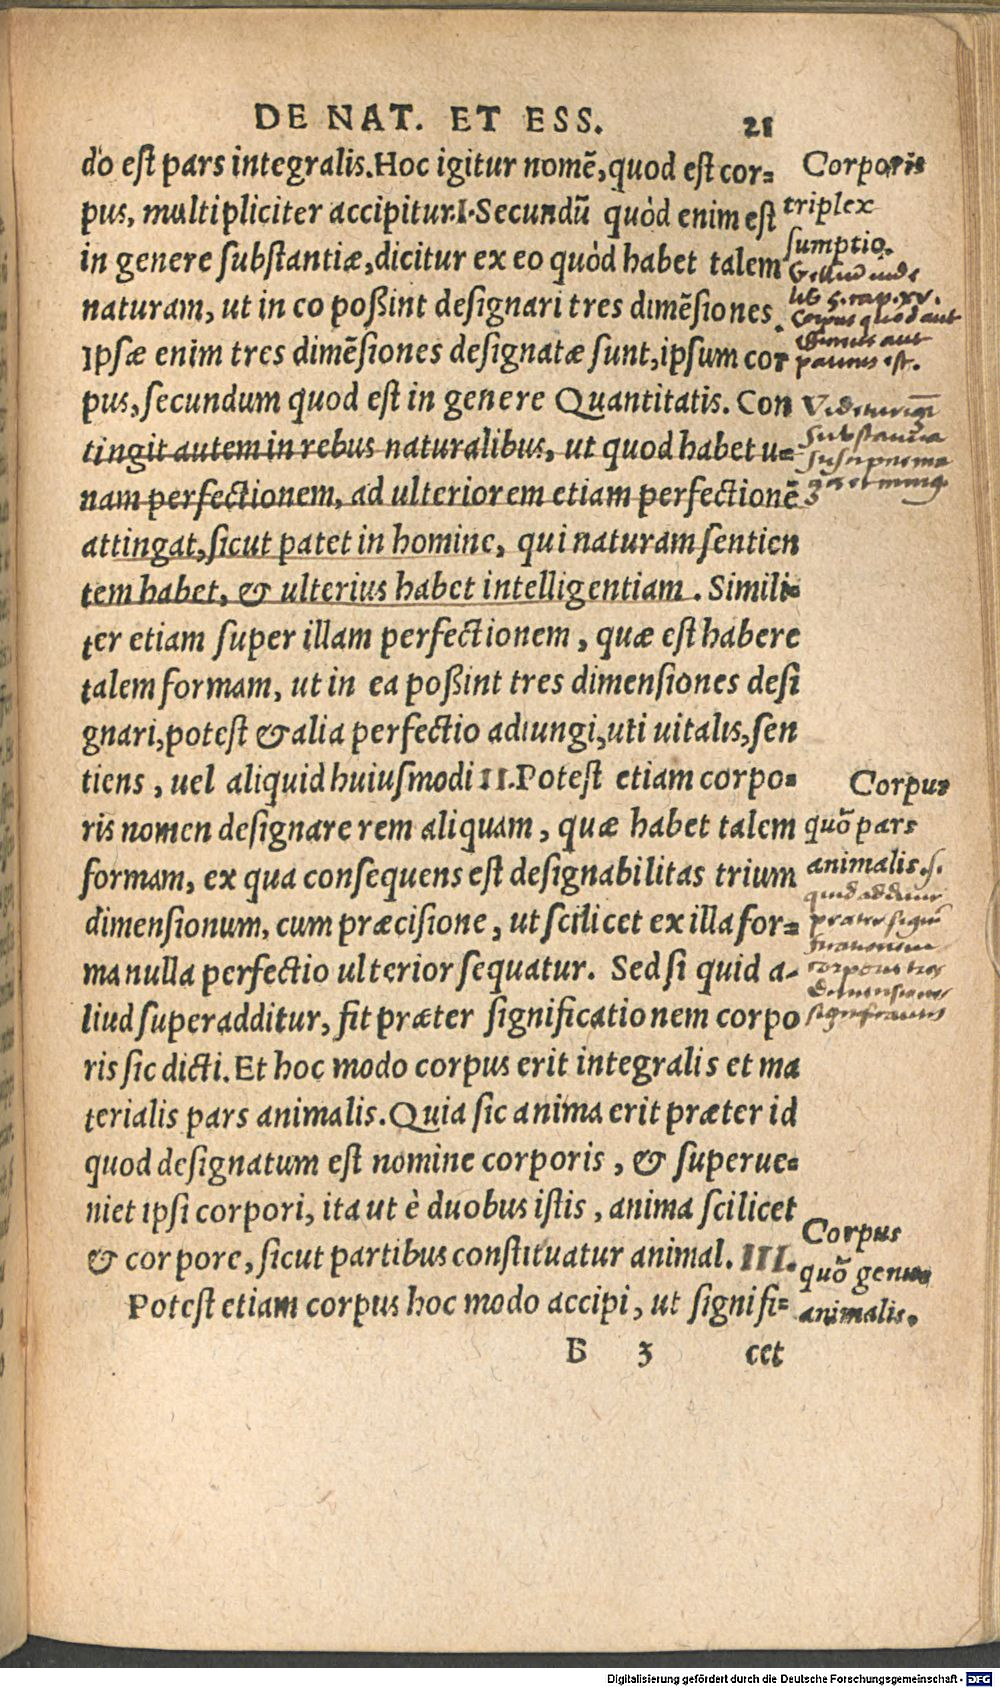 DE NAT. ET ESS. 21
do est pars integralis. Hoc igitur nomẽ, quod est cor-
pus, multipliciter accipitur. I. Secundũ quòd enim est
in genere substantiæ, dicitur ex eo quòd habet talem
naturam, ut in eo poßint designari tres dimẽsiones.
Ipsæ enim tres dimẽsiones designatæ sunt, ipsum cor
pus, secundum quod est in genere Quantitatis. Con
tingit autem in rebus naturalibus, ut quod habet u-
nam perfectionem, ad ulteriorem etiam perfectionẽ
attingat, sicut patet in homine, qui naturam sentien
tem habet, & ulterius habet intelligentiam. Simili-
ter etiam super illam perfectionem, quæ est habere
talem formam, ut in ea poßint tres dimensiones desi
gnari, potest & alia perfectio adiungi, uti uitalis, sen
tiens, uel aliquid huiusmodi II. Potest etiam corpo-
ris nomen designare rem aliquam, quæ habet talem
formam, ex qua consequens est designabilitas trium
dimensionum, cum præcisione, ut scilicet ex illa for-
ma nulla perfectio ulterior sequatur. Sed si quid a-
liud superadditur, fit præter significationem corpo
ris sic dicti. Et hoc modo corpus erit integralis et ma
terialis pars animalis. Quia sic anima erit præter id
quod designatum est nomine corporis, & superue-
niet ipsi corpori, ita ut è duobus istis, anima scilicet
& corpore, sicut partibus constituatur animal. III.
Potest etiam corpus hoc modo accipi, ut signifi-
B 3 cet
Corporis
triplex
sumptio.
lib 5. cap. xv.
Corpus quod aut
aut
est.
Corpus
quõ pars
animalis.
Corpus
quõ genus
animalis.
Digitalisierung gefördert durch die Deutsche Forschungsgemeinschaft - DFG